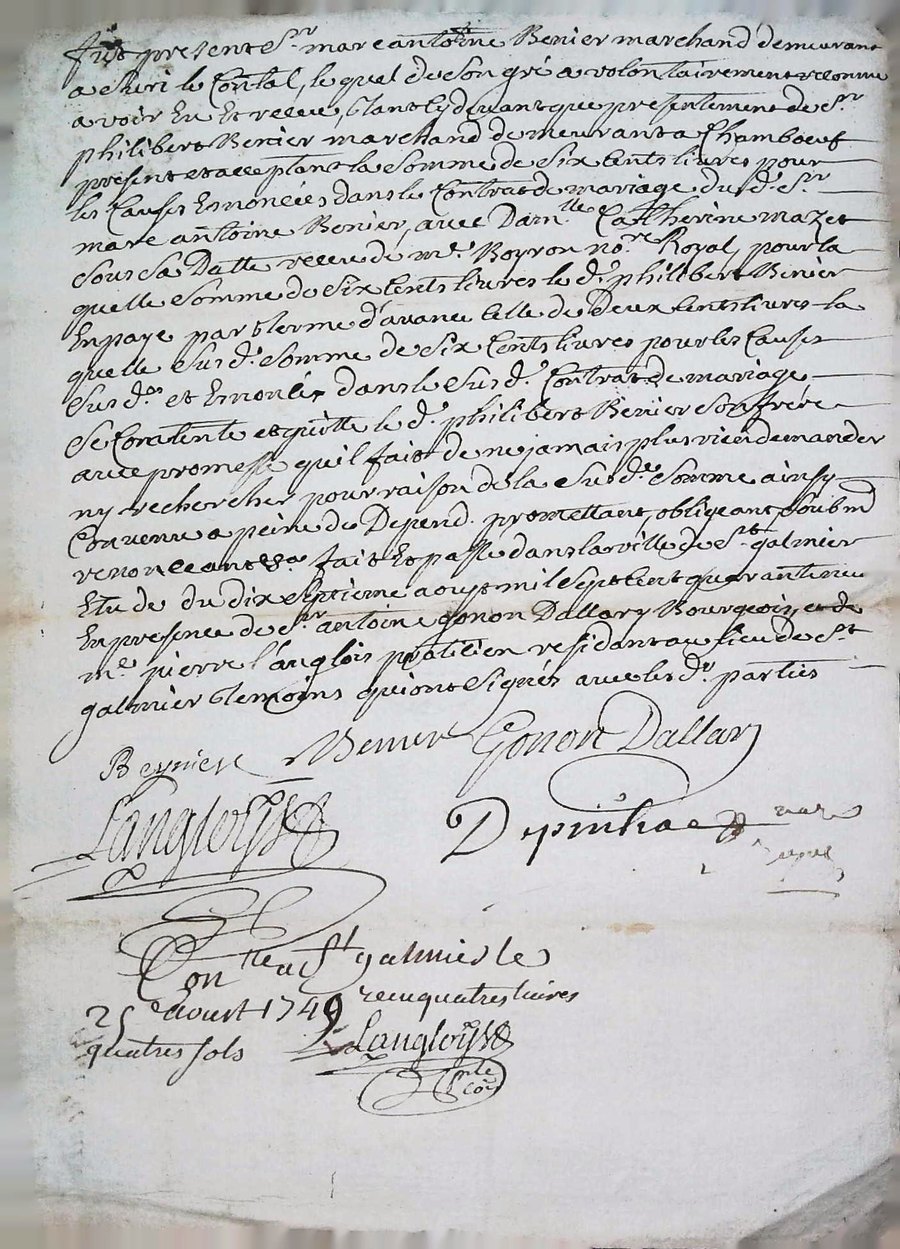 fut present Sr. marc antoine Benier marchand demeurant
a Suri le Contal, lequel de Son gré a volontairement reconnu
avoir Eu Et receu, tant cy devant que presentement de Sr
philibert Benier marchand demeurant a Chamboeuf
present et acceptant la Somme de Six Cents livres pour
les Causes Enoncées dans le Contrat de mariage dud. Sr
marc antoine Benier, avec Damlle Catherine mazet
Sous Sa Datte receu de me. Boyron nore Royal, pour la
quelle Somme de Six Cents livres led. philibert Benier
En paye par terme d'avance Celle de Deux Cents livres la
quelle Susd. Somme de Six Cents livres pour les Causes
Susd.es et Enoncées dans le Susd. Contrat de mariage
Se Contente et quitte led. philibert Benier Son frere
avec promesse qu'il fait de ne jamais plus rien demander
ny rechercher pour raison de la Susde. Somme ainsy
Convenu a peine de Depend. promettant, obligeant, Soubmd
renonceant &a. fait Et passé dans la ville de St. galmier
Etude du dix Septieme aoust mil Sept Cent quarante neuf
En presence de Sr. antoine gonon Dallary Bourgeois, et de
me. pierre l'anglois praticien residant au lieu de St
galmier temoins qui ont Signés avec lesd. parties
Beyniere Benier Gonon Dallary
Langlois
Depinhac
Conlle a St galmier le
25 Aoust 1749 receu quatres livres
quatres sols Langlois